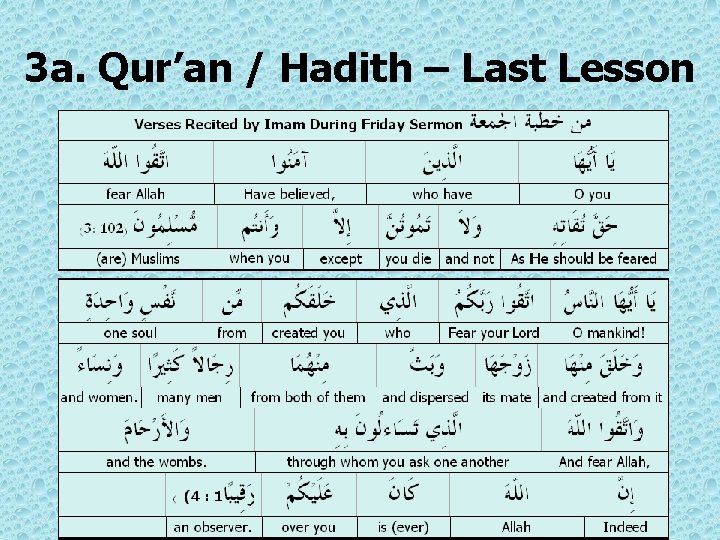 3 a. Qur’an / Hadith – Last Lesson
Verses Recited by Imam During Friday Sermon من خطبة الجمعة
يَا أَيُّهَا الَّذِينَ آمَنُوا اتَّقُوا اللَّهَ
O you who have Have believed, fear Allah
حَقَّ تُقَاتِهِ وَلاَ تَمُوتُنَّ إِلاَّ وَأَنتُم مُّسْلِمُونَ (3: 102)
As He should be feared and not you die except when you (are) Muslims
يَا أَيُّهَا النَّاسُ اتَّقُوا رَبَّكُمُ الَّذِي خَلَقَكُم مِّن نَّفْسٍ وَاحِدَةٍ
O mankind! Fear your Lord who created you from one soul
وَخَلَقَ مِنْهَا زَوْجَهَا وَبَثَّ مِنْهُمَا رِجَالاً كَثِيرًا وَنِسَاءً
and created from it its mate and dispersed from both of them many men and women.
وَاتَّقُوا اللَّهَ الَّذِي تَسَاءَلُونَ بِهِ وَالأَرْحَامَ
And fear Allah, through whom you ask one another and the wombs.
إِنَّ اللَّهَ كَانَ عَلَيْكُمْ رَقِيبًا (4 : 1)
Indeed Allah is (ever) over you an observer.